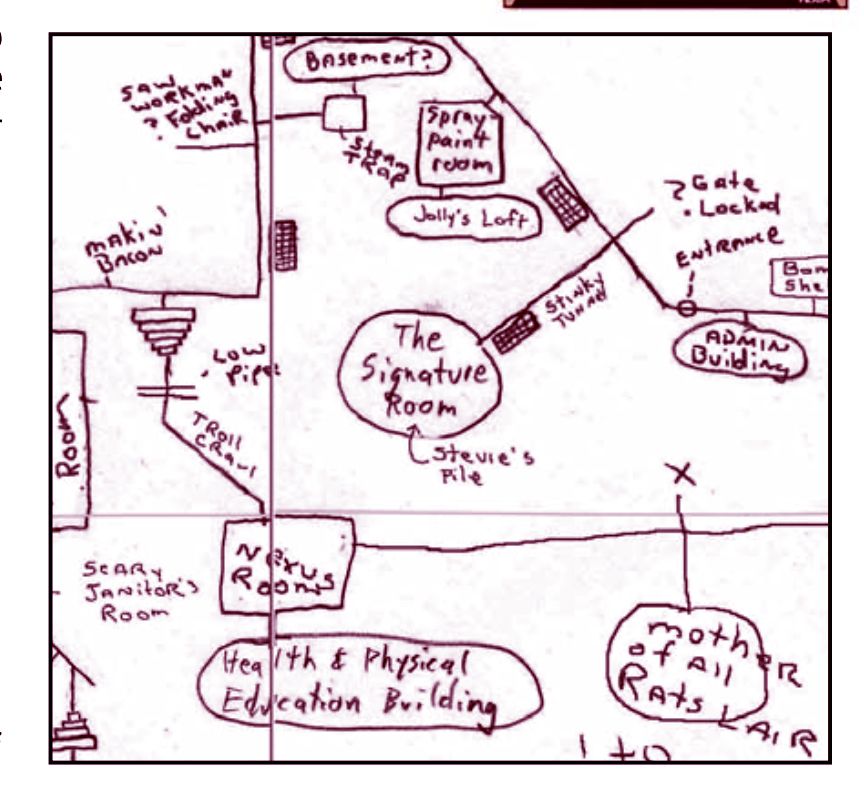 Basement?
SAW
WORKMAN
? Folding
Chair
Steam
TRAP
Spray
paint
room
Jolly's Loft
? Gate
. Locked
ENTRANCE
makin'
Bacon
STINKY
TUNNEL
ADMIN
Building
The
Signature
Room
Low
Pipe
TROLL
CRAWL
Room
Stevie's
Pile
X
Nexus
Room
SCARY
JANITOR'S
Room
mother
of All
Rats LAIR
Health & Physical
Education Building